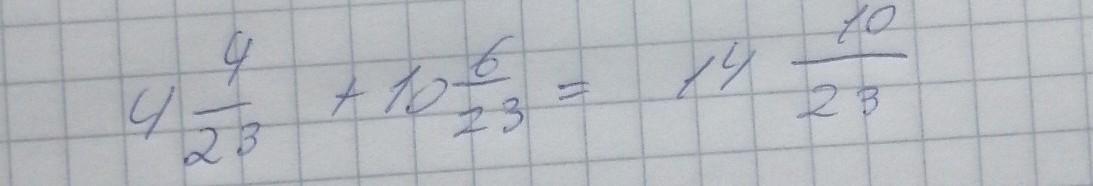 4 4/23 + 10 6/23 = 14 10/23